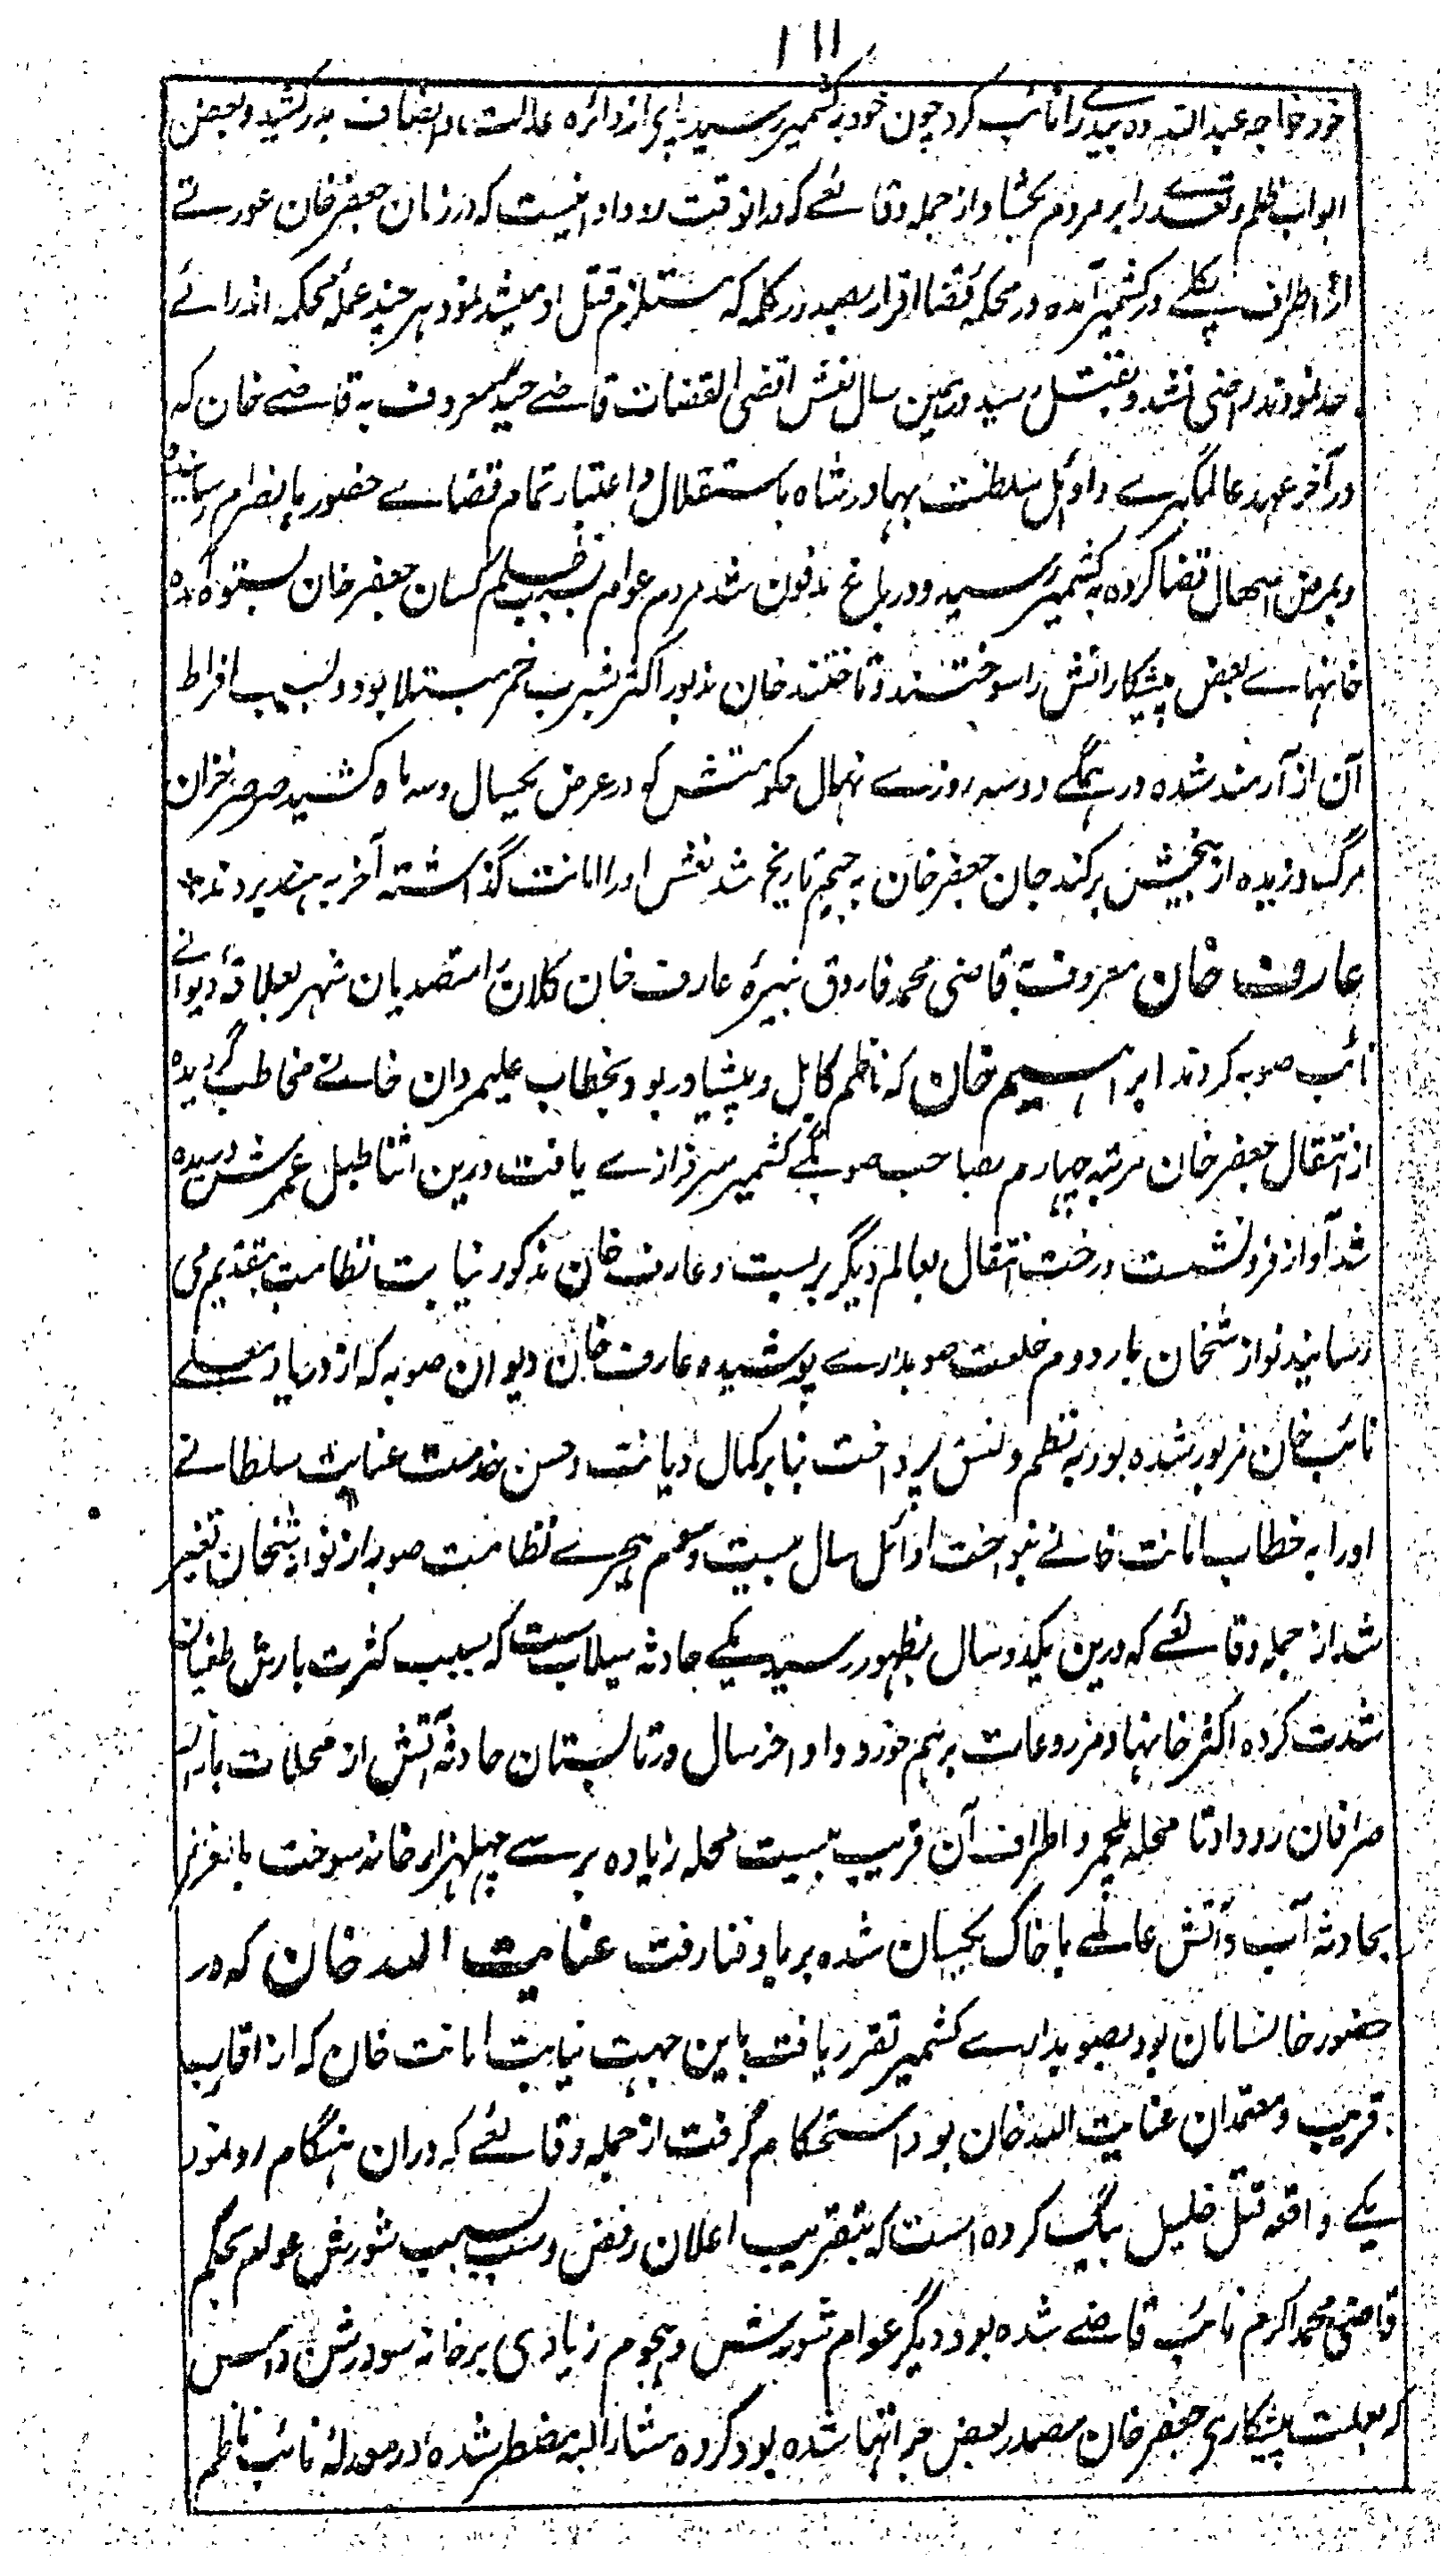 ۱۱۱
خود خواجه عبدالله ده بیدی را نائب کرد چون خود به کشمیر رسید پای از دائره عدالت و انصاف بدر کشید و بعض
ابواب ظلم و تعدے را بر مردم بکشاد از جمله وقائعے که در انوقت رو داد اینست که در زمان جعفر خان عورتے
از اطراف پکلے در کشمیر آمده در محکمهٔ قضا اقرار بصدور کلمه که مستلزم قتل او میشد نمود هر چند عملهٔ محکمه اندرائے
حد نمودند راضی نشد و بقتل رسید و در همین سال نعش اقضی القضات قاضے حیدر معروف به قاضے خان که
در آخر عهد عالمگیرے و اوائل سلطنت بهادر شاه باستقلال و اعتبار تمام قضاے حضور بانصرام رسانیده
و بمرض اسهال قضا کرده به کشمیر رسید و در باغ مدفون شد مردم عوام بسبب ظلم کسان جعفر خان بستوه آمده
خانهاے بعض پیشکارانش را سوختند و تاختند خان مذبور اکثر بشرب خمر مبتلا بود و بسبب افراط
آن از آرمند شده در همگے دو سه روزے نهال حکومتش که در عرض یکسال و سه ماه کشید صرصر خزان
مرگ وزیده از بیخش برکند جان جعفر خان به جحیم تاریخ شد نعش او را امانت گذاشته آخر به هند بردند
عارف خان معروف بقاضی محمد فاروق نبیرهٔ عارف خان کلان را متصدیان شهر بعلاقهٔ دیوانے
نائب صوبه کردند ابراهیم خان که ناظم کابل و پیشاور بود بخطاب علیمردان خانے مخاطب گردیده
از انتقال جعفر خان مرتبه چهارم بصاحب صوبگے کشمیر سرفرازے یافت درین اثنا طبل عمرش دریده
شد آواز فرو نشست و رخت انتقال بعالم دیگر بربست و عارف خان مذکور نیابت نظامت بتقدیم می
رسانید نوازشخان بار دوم خلعت صوبدارے پوشیده عارف خان دیوان صوبه که از دربار معلے
نائب خان مزبور شده بود به نظم و نسق پرداخت بنابر کمال دیانت و حسن خدمت عنایت سلطانے
او را به خطاب امانت خانے بنواخت اوائل سال بیست و سوم هجرے نظامت صوبه از نوازشخان تغیر
شد از جمله وقائعے که درین یکدو سال بظهور رسید یکے حادثه سیلابست که بسبب کثرت بارش طغیان
شدت کرده اکثر خانها و مزروعات برهم خورد و اواخر سال در تابستان حادثهٔ آتش از محلات بازار
صرافان رو داد تا محله بلچمر و اطراف آن قریب بیست محله زیاده بر سے چهل هزار خانه سوخت بالفرض
بحادثه آب و آتش عالمے با خاک یکسان شده بر باد فنا رفت عنایت الله خان که در
حضور خانسامان بود بصوبدارے کشمیر تقرر یافت باین جهت نیابت امانت خان که از اقارب
قریب و معتمدان عنایت الله خان بود استحکام گرفت از جمله وقائعے که دران هنگام رو نمود
یکے واقعه قتل خلیل بیگ کرده است که بتقریب اعلان رفض و سب بسبب شورش عوام بحکم
قاضی محمد اکرم نائب قاضے شده بود و دیگر عوام شورش و هجوم زیادی بر خانه سودرشن داس
که بعلت پیشکاری جعفر خان مصدر بعض جرأتها شده بود کرده مشار الیه مضطر شده در معدلهٔ نائب ناظم